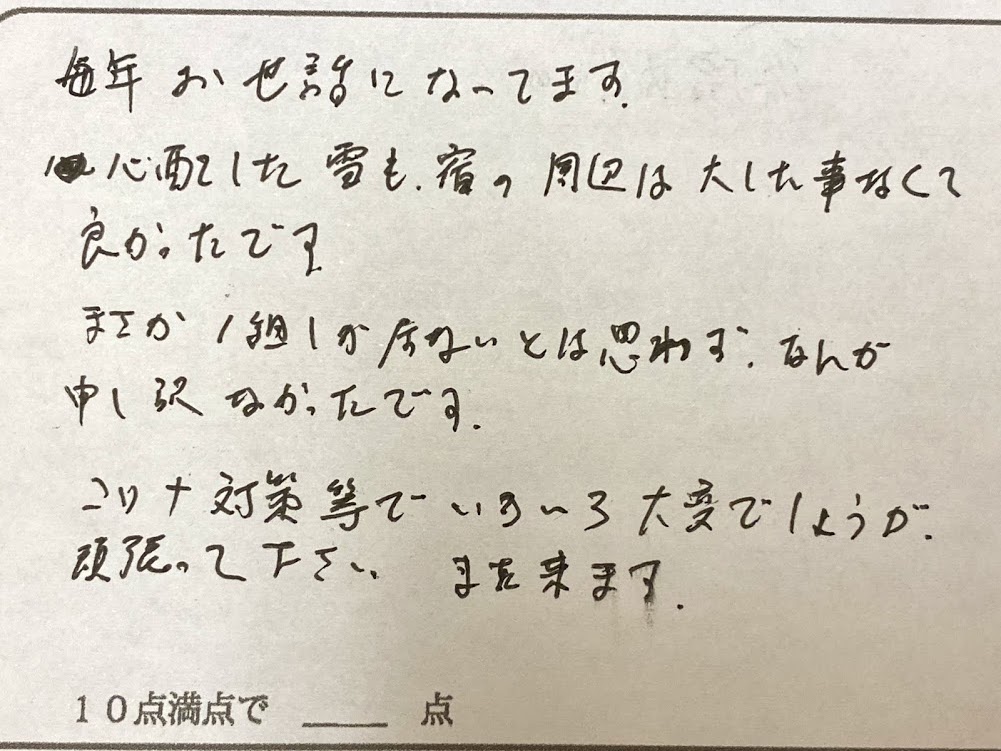 毎年お世話になってます.
心配した雪も、宿の周辺は大した事なくて
良かったです
まさか1組しか居ないとは思わず、なんか
申し訳なかったです.
コロナ対策等でいろいろ大変でしょうが、
頑張って下さい. また来ます.
10点満点で ____ 点